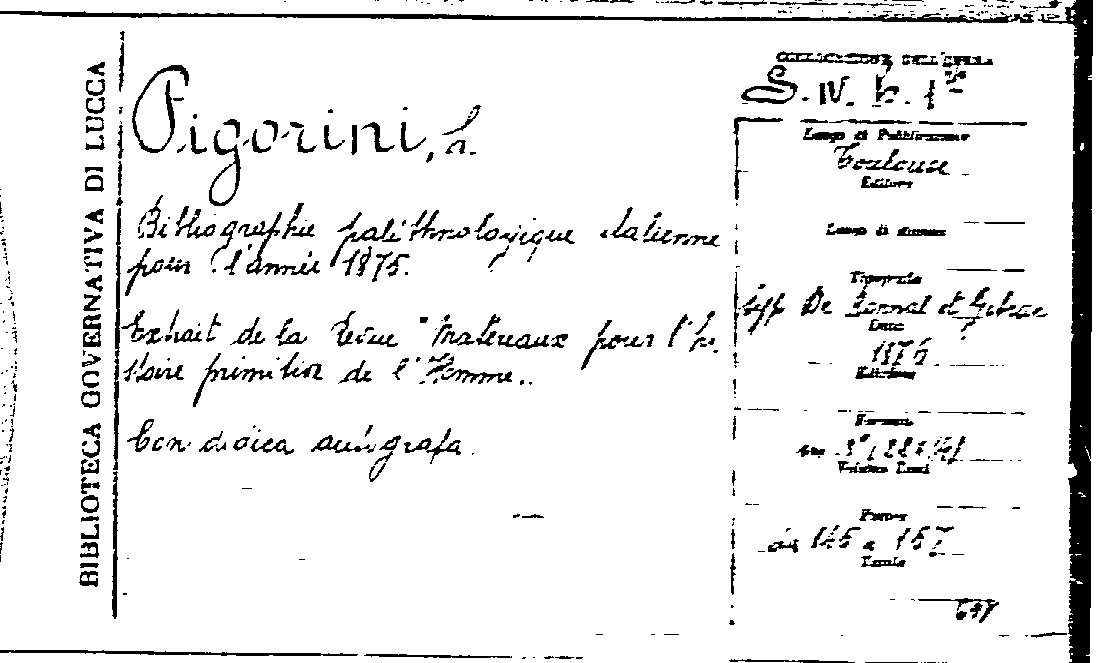 BIBLIOTECA GOVERNATIVA DI LUCCA
Pigorini, L.
Bibliographie paléthnologique italienne
pour l'année 1875.
Extrait de la Revue "Matériaux pour l'hi-
stoire primitive de l'Homme".
Con dedica autografa.
COLLOCAZIONE DELL'OPERA
S. IV. b. 1
Luogo di Pubblicazione
Toulouse
Editore
Luogo di stampa
Tipografia
Typ. De
Data
1876
Edizione
Formato
in 8°
Volume
Pagine
da 145 a 157
Tavole